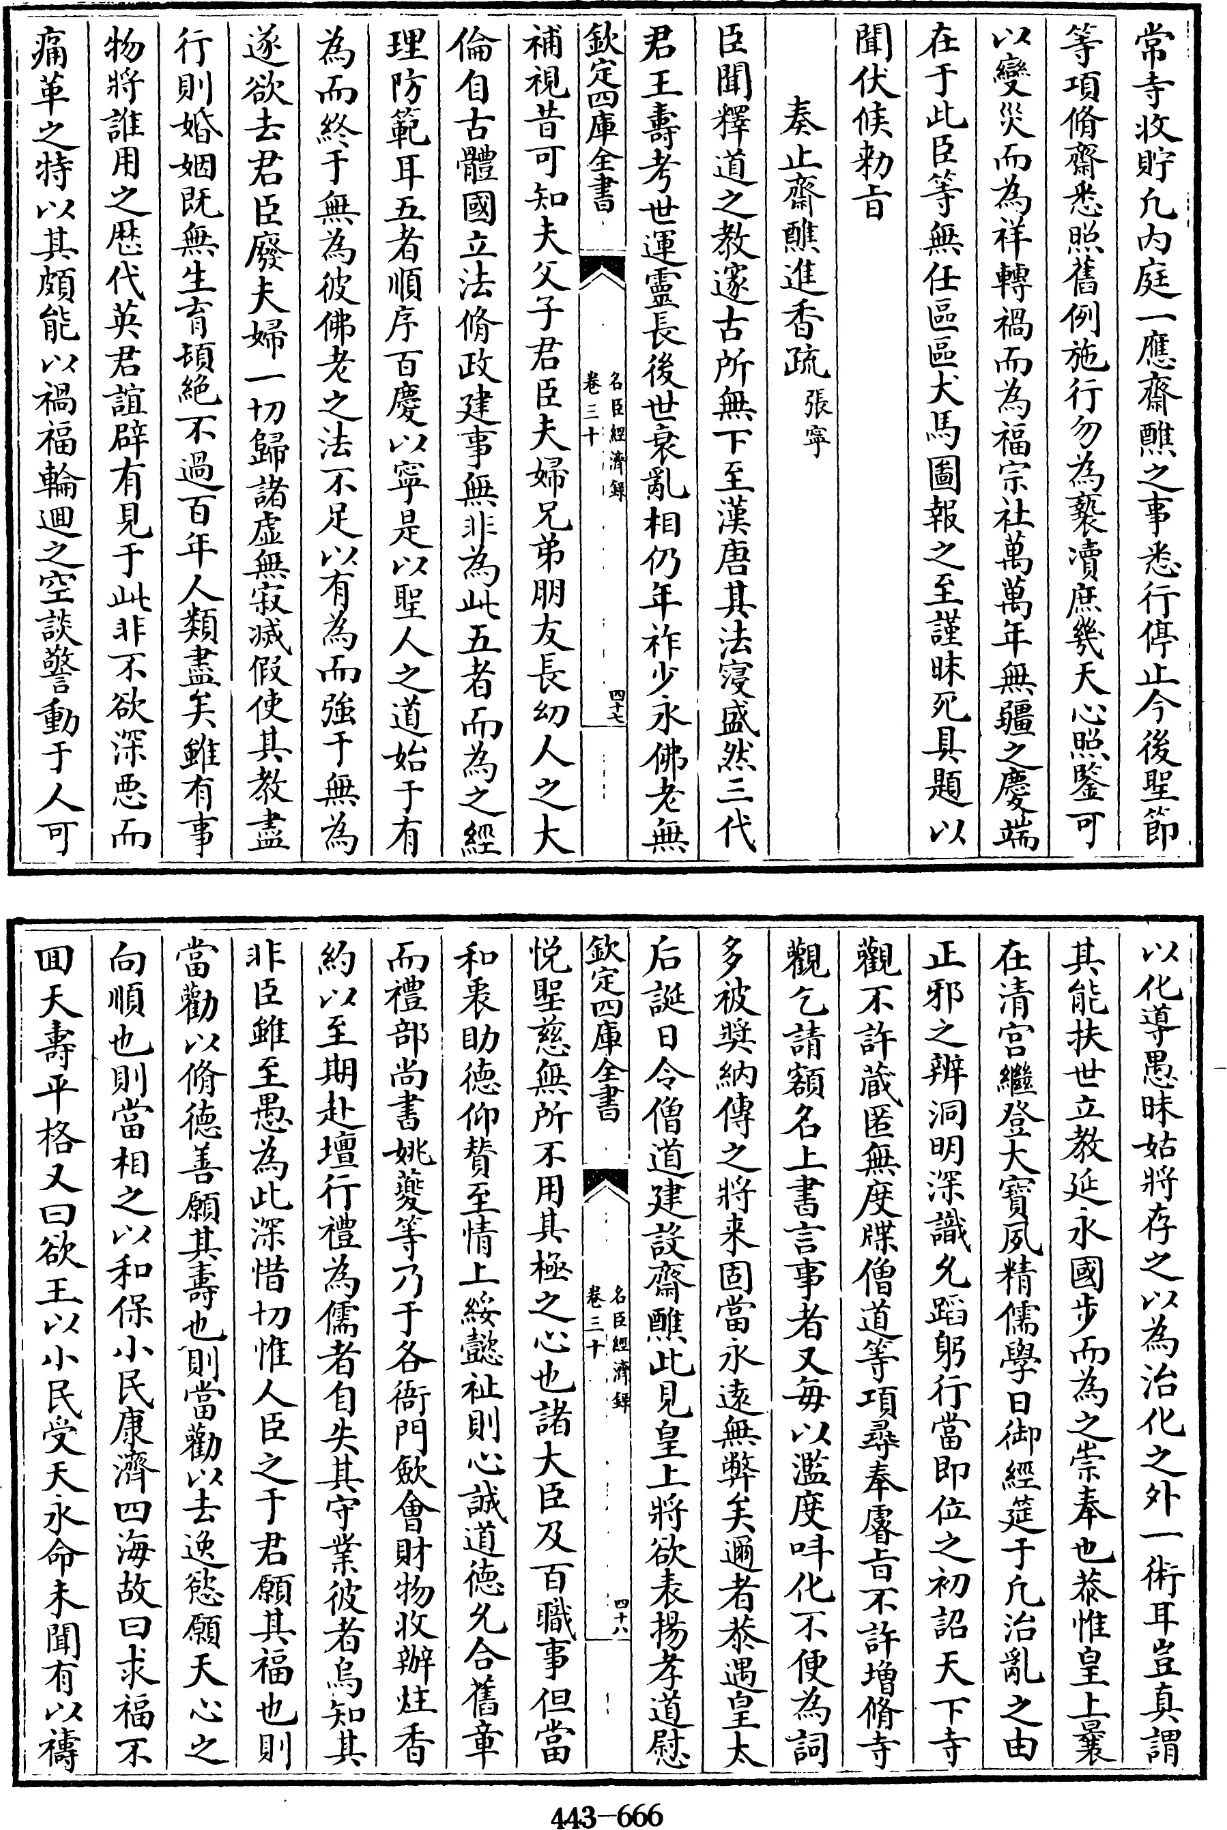 常寺收貯凡内庭一應齋醮之事悉行停止今後聖節
等項脩齋悉照舊例施行勿為褻瀆庶幾天心照鑒可
以變災而為祥轉禍而為福宗社萬萬年無疆之慶端
在于此臣等無任區區犬馬圖報之至謹昧死具題以
聞伏候勅旨
奏止齋醮進香疏 張寧
臣聞釋道之教邃古所無下至漢唐其法寖盛然三代
君王壽考世運靈長後世衰亂相仍年祚少永佛老無
欽定四庫全書 名臣經濟録 卷三十 四十七
補視昔可知夫父子君臣夫婦兄弟朋友長幼人之大
倫自古體國立法脩政建事無非為此五者而為之經
理防範耳五者順序百慶以寧是以聖人之道始于有
為而終于無為彼佛老之法不足以有為而強于無為
遂欲去君臣廢夫婦一切歸諸虚無寂滅假使其教盡
行則婚姻既無生育頓絶不過百年人類盡矣雖有事
物將誰用之歴代英君誼辟有見于此非不欲深惡而
痛革之特以其頗能以禍福輪迴之空談警動于人可
以化導愚昧姑將存之以為治化之外一術耳豈真謂
其能扶世立教延永國步而為之崇奉也恭惟皇上曩
在清宫繼登大寶夙精儒學日御經筵于凡治亂之由
正邪之辨洞明深識允蹈躬行當即位之初詔天下寺
觀不許蔵匿無度牒僧道等項尋奉睿旨不許增脩寺
觀乞請額名上書言事者又每以濫度呌化不便為詞
多被奬納傳之將来固當永遠無弊矣邇者恭遇皇太
后誕日令僧道建設齋醮此見皇上將欲表揚孝道慰
欽定四庫全書 名臣經濟録 卷三十 四十八
悦聖慈無所不用其極之心也諸大臣及百職事但當
和衷助德仰賛至情上綏懿祉則心誠道德允合舊章
而禮部尚書姚夔等乃于各衙門斂會財物收辦炷香
約以至期赴壇行禮為儒者自失其守業彼者烏知其
非臣雖至愚為此深惜切惟人臣之于君願其福也則
當勸以脩德善願其壽也則當勸以去逸慾願天心之
向順也則當相之以和保小民康濟四海故曰求福不
回天壽平格又曰欲王以小民受天永命未聞有以禱
443-666